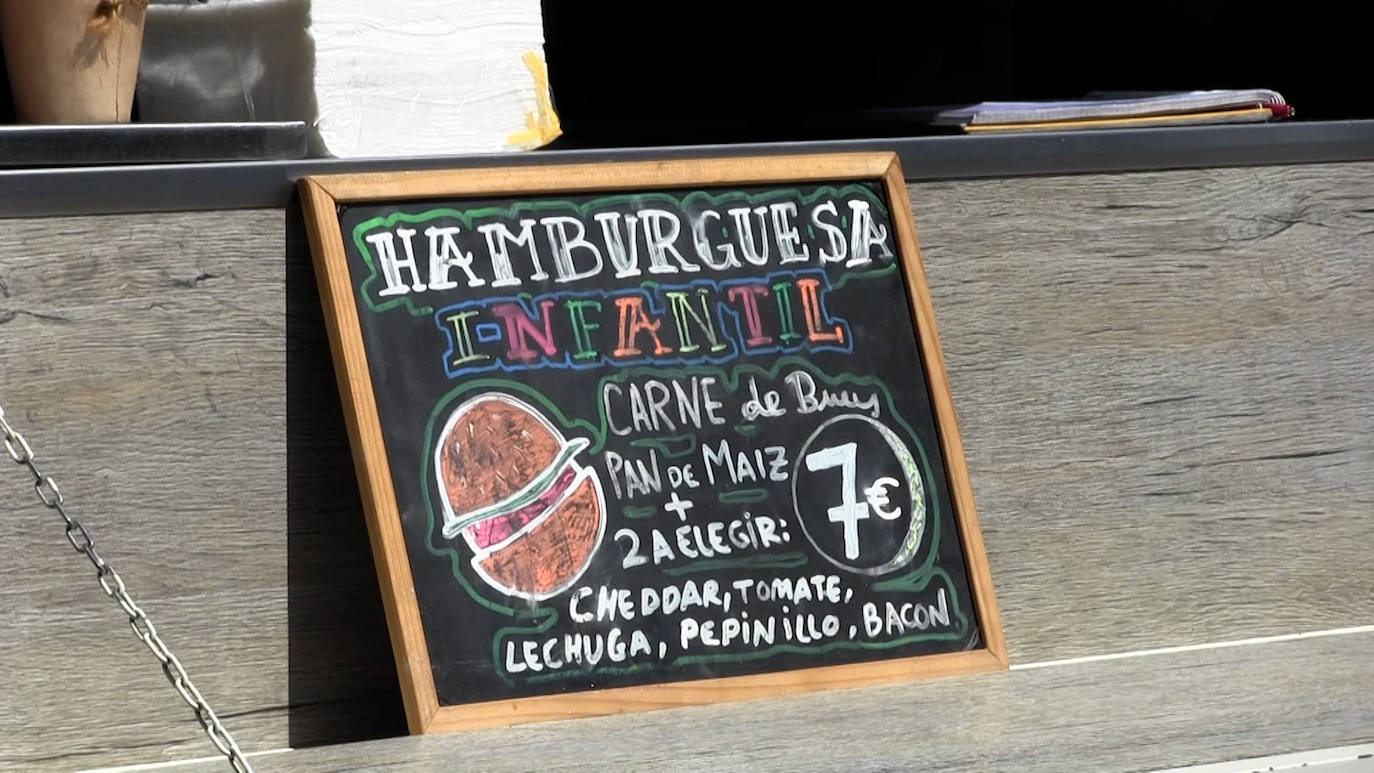 HAMBURGUESA
INFANTIL
CARNE de Buey
PAN DE MAIZ
+
2 A ELEGIR:
7€
CHEDDAR, TOMATE,
LECHUGA, PEPINILLO, BACON